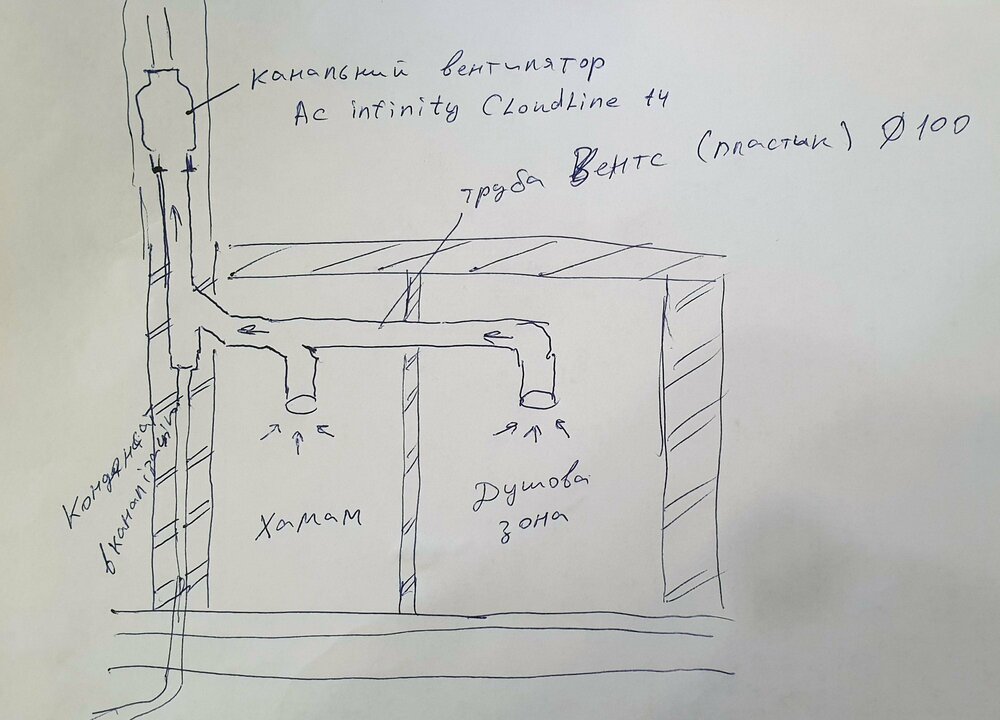 канальний вентилятор
Ac infinity CLoudLine t4
труба Вентс (пластик) Ø 100
Конденсат
в каналізацію
Хамам
Душова
зона